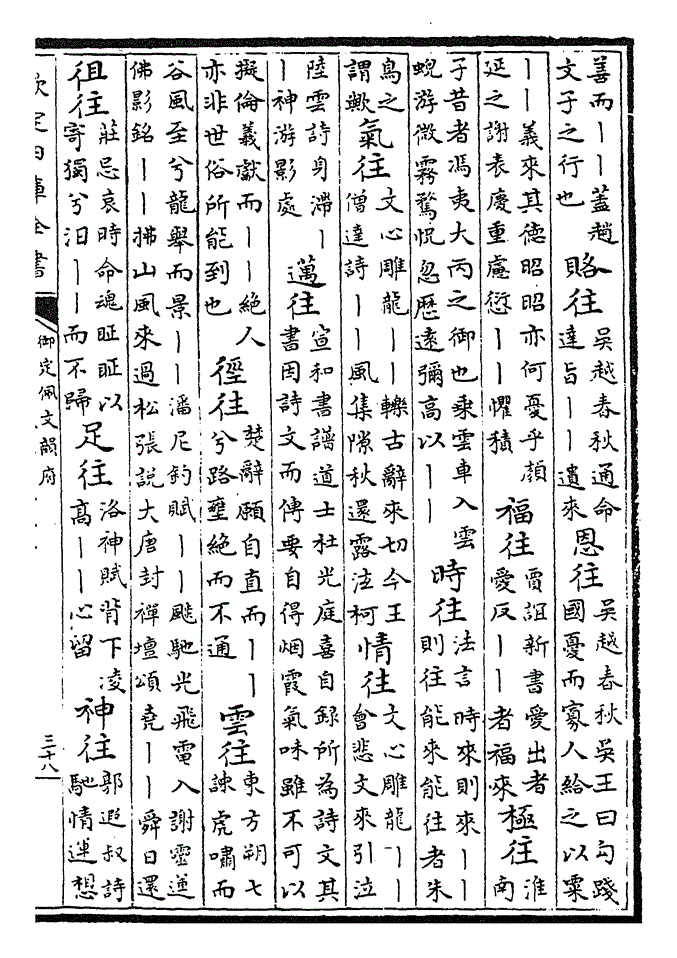 善而｜｜蓋趙文子之行也 賂往 吳越春秋通命達旨｜｜遺來 恩往 吳越春秋吳王曰勾踐國憂而寡人給之以粟
｜｜義來其德昭昭亦何憂乎顔延之謝表慶重慮愆｜｜懼積 福往 賈誼新書愛出者愛反｜｜者福來 極往 淮南
子昔者馮夷大丙之御也乘雲車入雲蜺游微霧驁怳忽歷遠彌高以｜｜ 時往 法言時來則來｜｜則往能來能往者朱
鳥之謂歟 氣往 文心雕龍｜｜轢古辭來切今王僧達詩｜｜風集隙秋還露泫柯 情往 文心雕龍｜｜會悲文來引泣
陸雲詩身滯｜｜神游影處 邁往 宣和書譜道士杜光庭喜自録所為詩文其書因詩文而傳要自得烟霞氣味雖不可以
擬倫義獻而｜｜絶人亦非世俗所能到也 徑往 楚辭願自直而｜｜兮路壅絶而不通 雲往 東方朔七諫虎嘯而
谷風至兮龍舉而景｜｜潘尼釣賦｜｜飈馳光飛電入謝靈運佛影銘｜｜拂山風來過松張說大唐封禪壇頌堯｜｜舜日還
徂往 莊忌哀時命魂眐眐以寄獨兮汩｜｜而不歸 足往 洛神賦背下凌高｜｜心留 神往 郭遐叔詩馳情運想
欽定四庫全書
御定佩文韻府
三十八